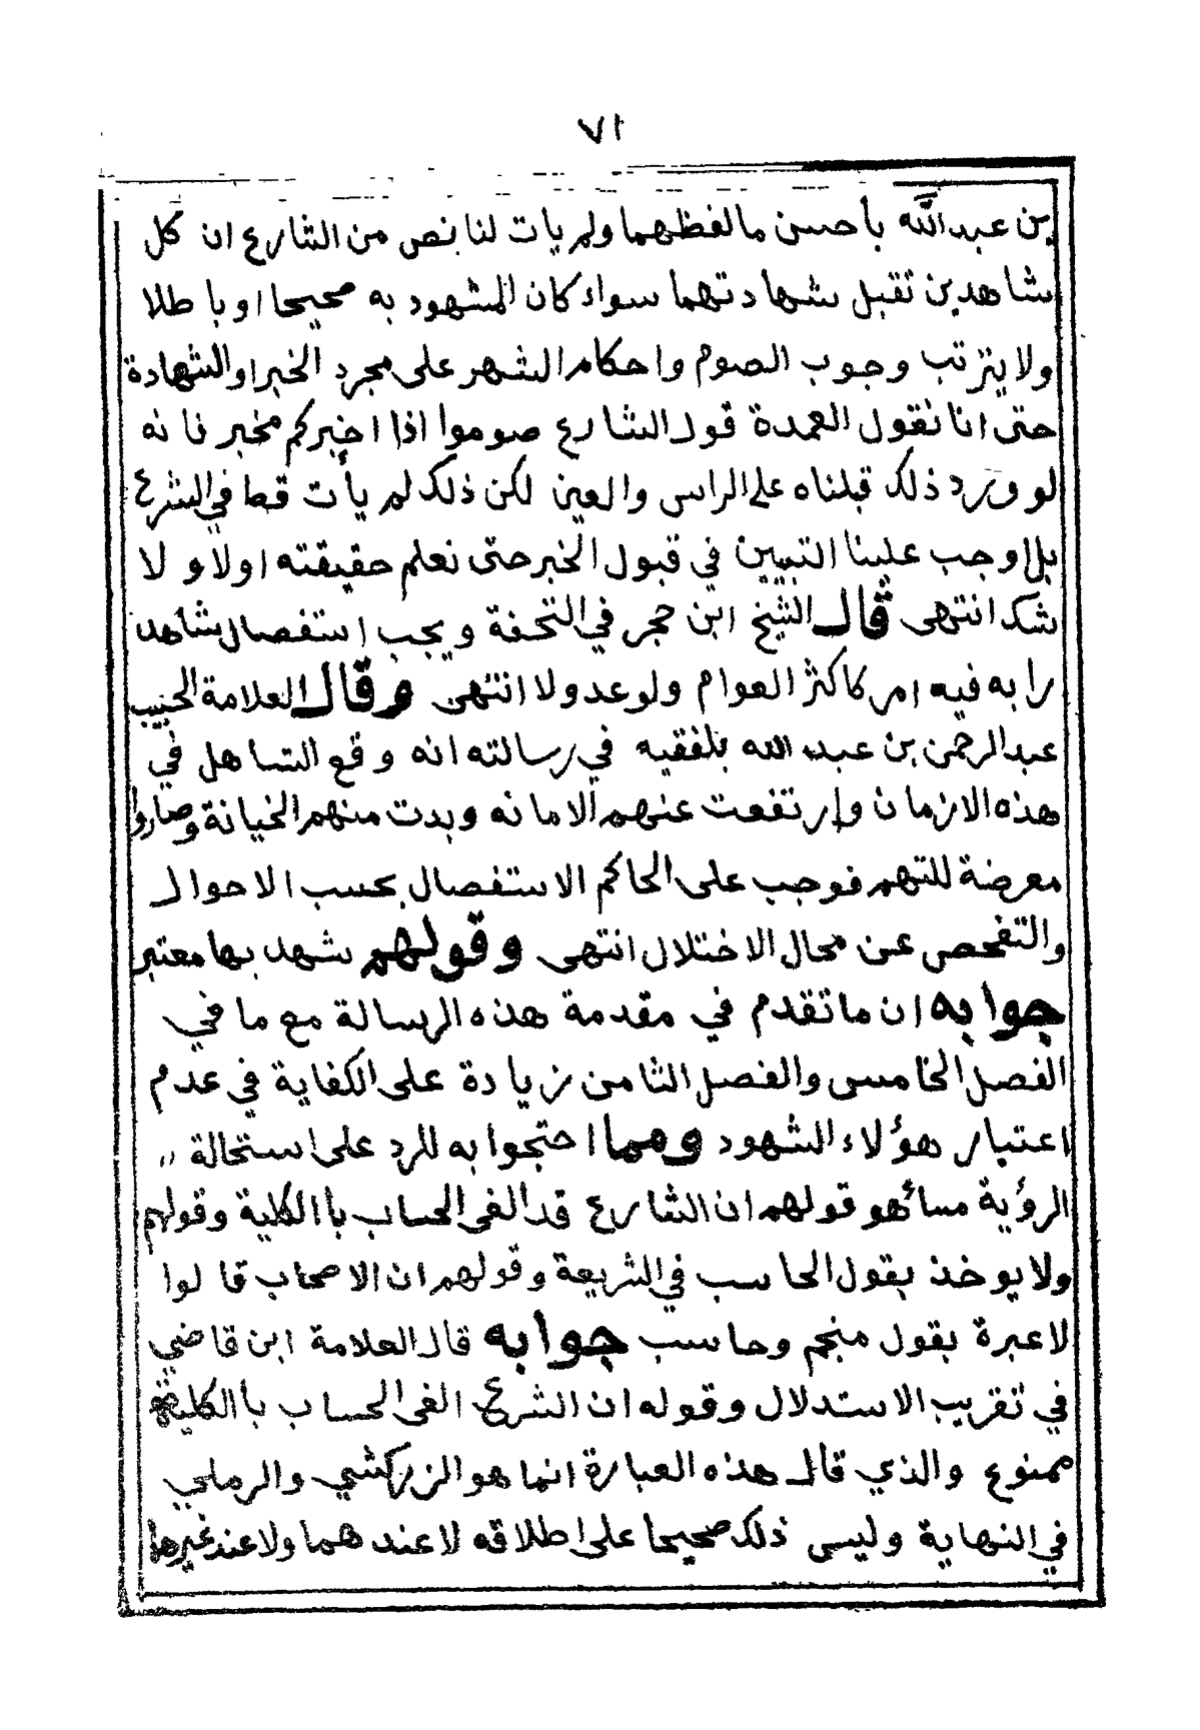 ٧١
بن عبدالله بأحسن ما لفظهما ولم يات لنا نص من الشارع ان كل
شاهدين تقبل شهادتهما سواء كان المشهود به صحيحا او با طلا
ولا يترتب وجوب الصوم واحكام الشهر على مجرد الخبر او الشهادة
حتى انا نقول العمدة قول الشارع صوموا اذا اخبركم مخبر فانه
لو ورد ذلك قبلناه على الراس والعين لكن ذلك لم يأت قط في الشرع
بل اوجب علينا التبيين في قبول الخبر حتى نعلم حقيقته اولا ولا
شك انتهى قال الشيخ ابن حجر في التحفة ويجب استفصال شاهد
رابه فيه امر كاكثر العوام ولو عدولا انتهى وقال العلامة الحبيب
عبدالرحمن بن عبد الله بلفقيه في رسالته انه وقع التساهل في
هذه الازمان وارتفعت عنهم الامانه وبدت منهم الخيانة وصاروا
معرضة للتهم فوجب على الحاكم الاستفصال بحسب الاحوال
والتفحص عن محال الاختلال انتهى وقولهم شهد بها معتبر
جوابه ان ما تقدم في مقدمة هذه الرسالة مع ما في
الفصل الخامس والفصل الثامن زيادة على الكفاية في عدم
اعتبار هؤلاء الشهود ومما احتجوا به للرد على استحالة ,,
الرؤية مسائهو قولهم ان الشارع قد الغى الحساب با الكلية وقولهم
ولا يوخذ بقول الحاسب في الشريعة وقولهم ان الاصحاب قالوا
لا عبرة بقول منجم وحاسب جوابه قال العلامة ابن قاضي
في تقريب الاستدلال وقوله ان الشرع الغى الحساب با الكلية
ممنوع والذي قال هذه العبارة انما هو الزركشي والرملي
في النهاية وليس ذلك صحيحا على اطلاقه لا عند هما ولا عند غيرها